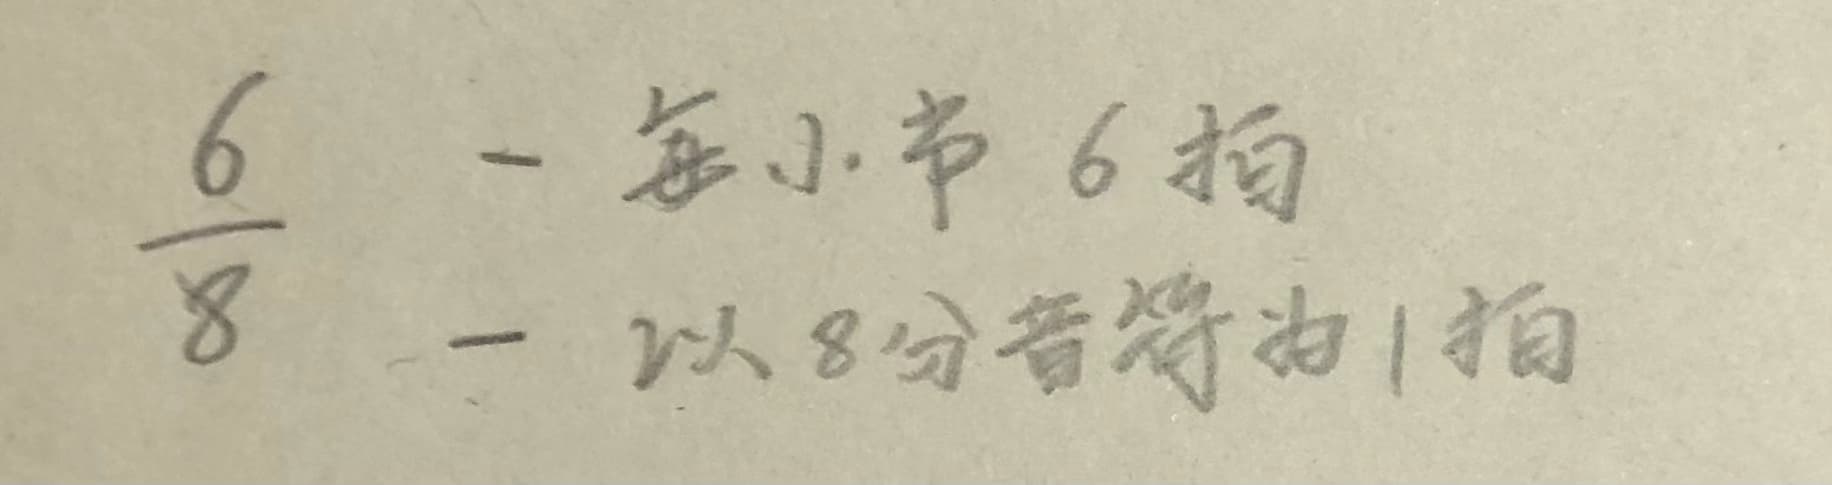 6 - 每小节 6 拍
8 - 以 8分音符为1拍